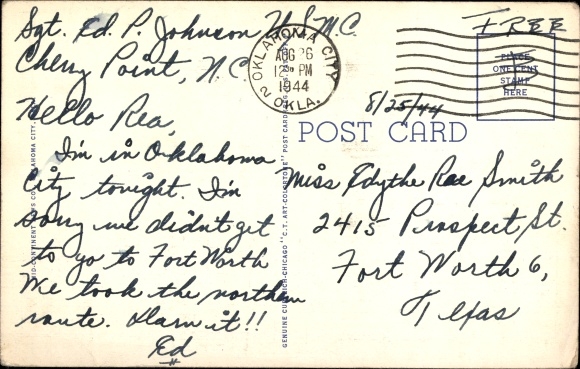 Sgt. Ed. P. Johnson U.S.M.C.
Cherry Point, N.C.
FREE
OKLAHOMA CITY
AUG 26
12 PM
1944
2 OKLA.
PLACE
ONE CENT
STAMP
HERE
8/25/44
POST CARD
Hello Rea,
I'm in Oklahoma
City tonight. I'm
sorry we didn't get
to go to Fort Worth
We took the northern
route. Darn it!!
Ed
Miss Edythe Rae Smith
2415 Prospect St.
Fort Worth 6,
Texas
GENUINE CURTEICH-CHICAGO "C.T. ART-COLORTONE" POST CARD
MID-CONTINENT NEWS CO., OKLAHOMA CITY,